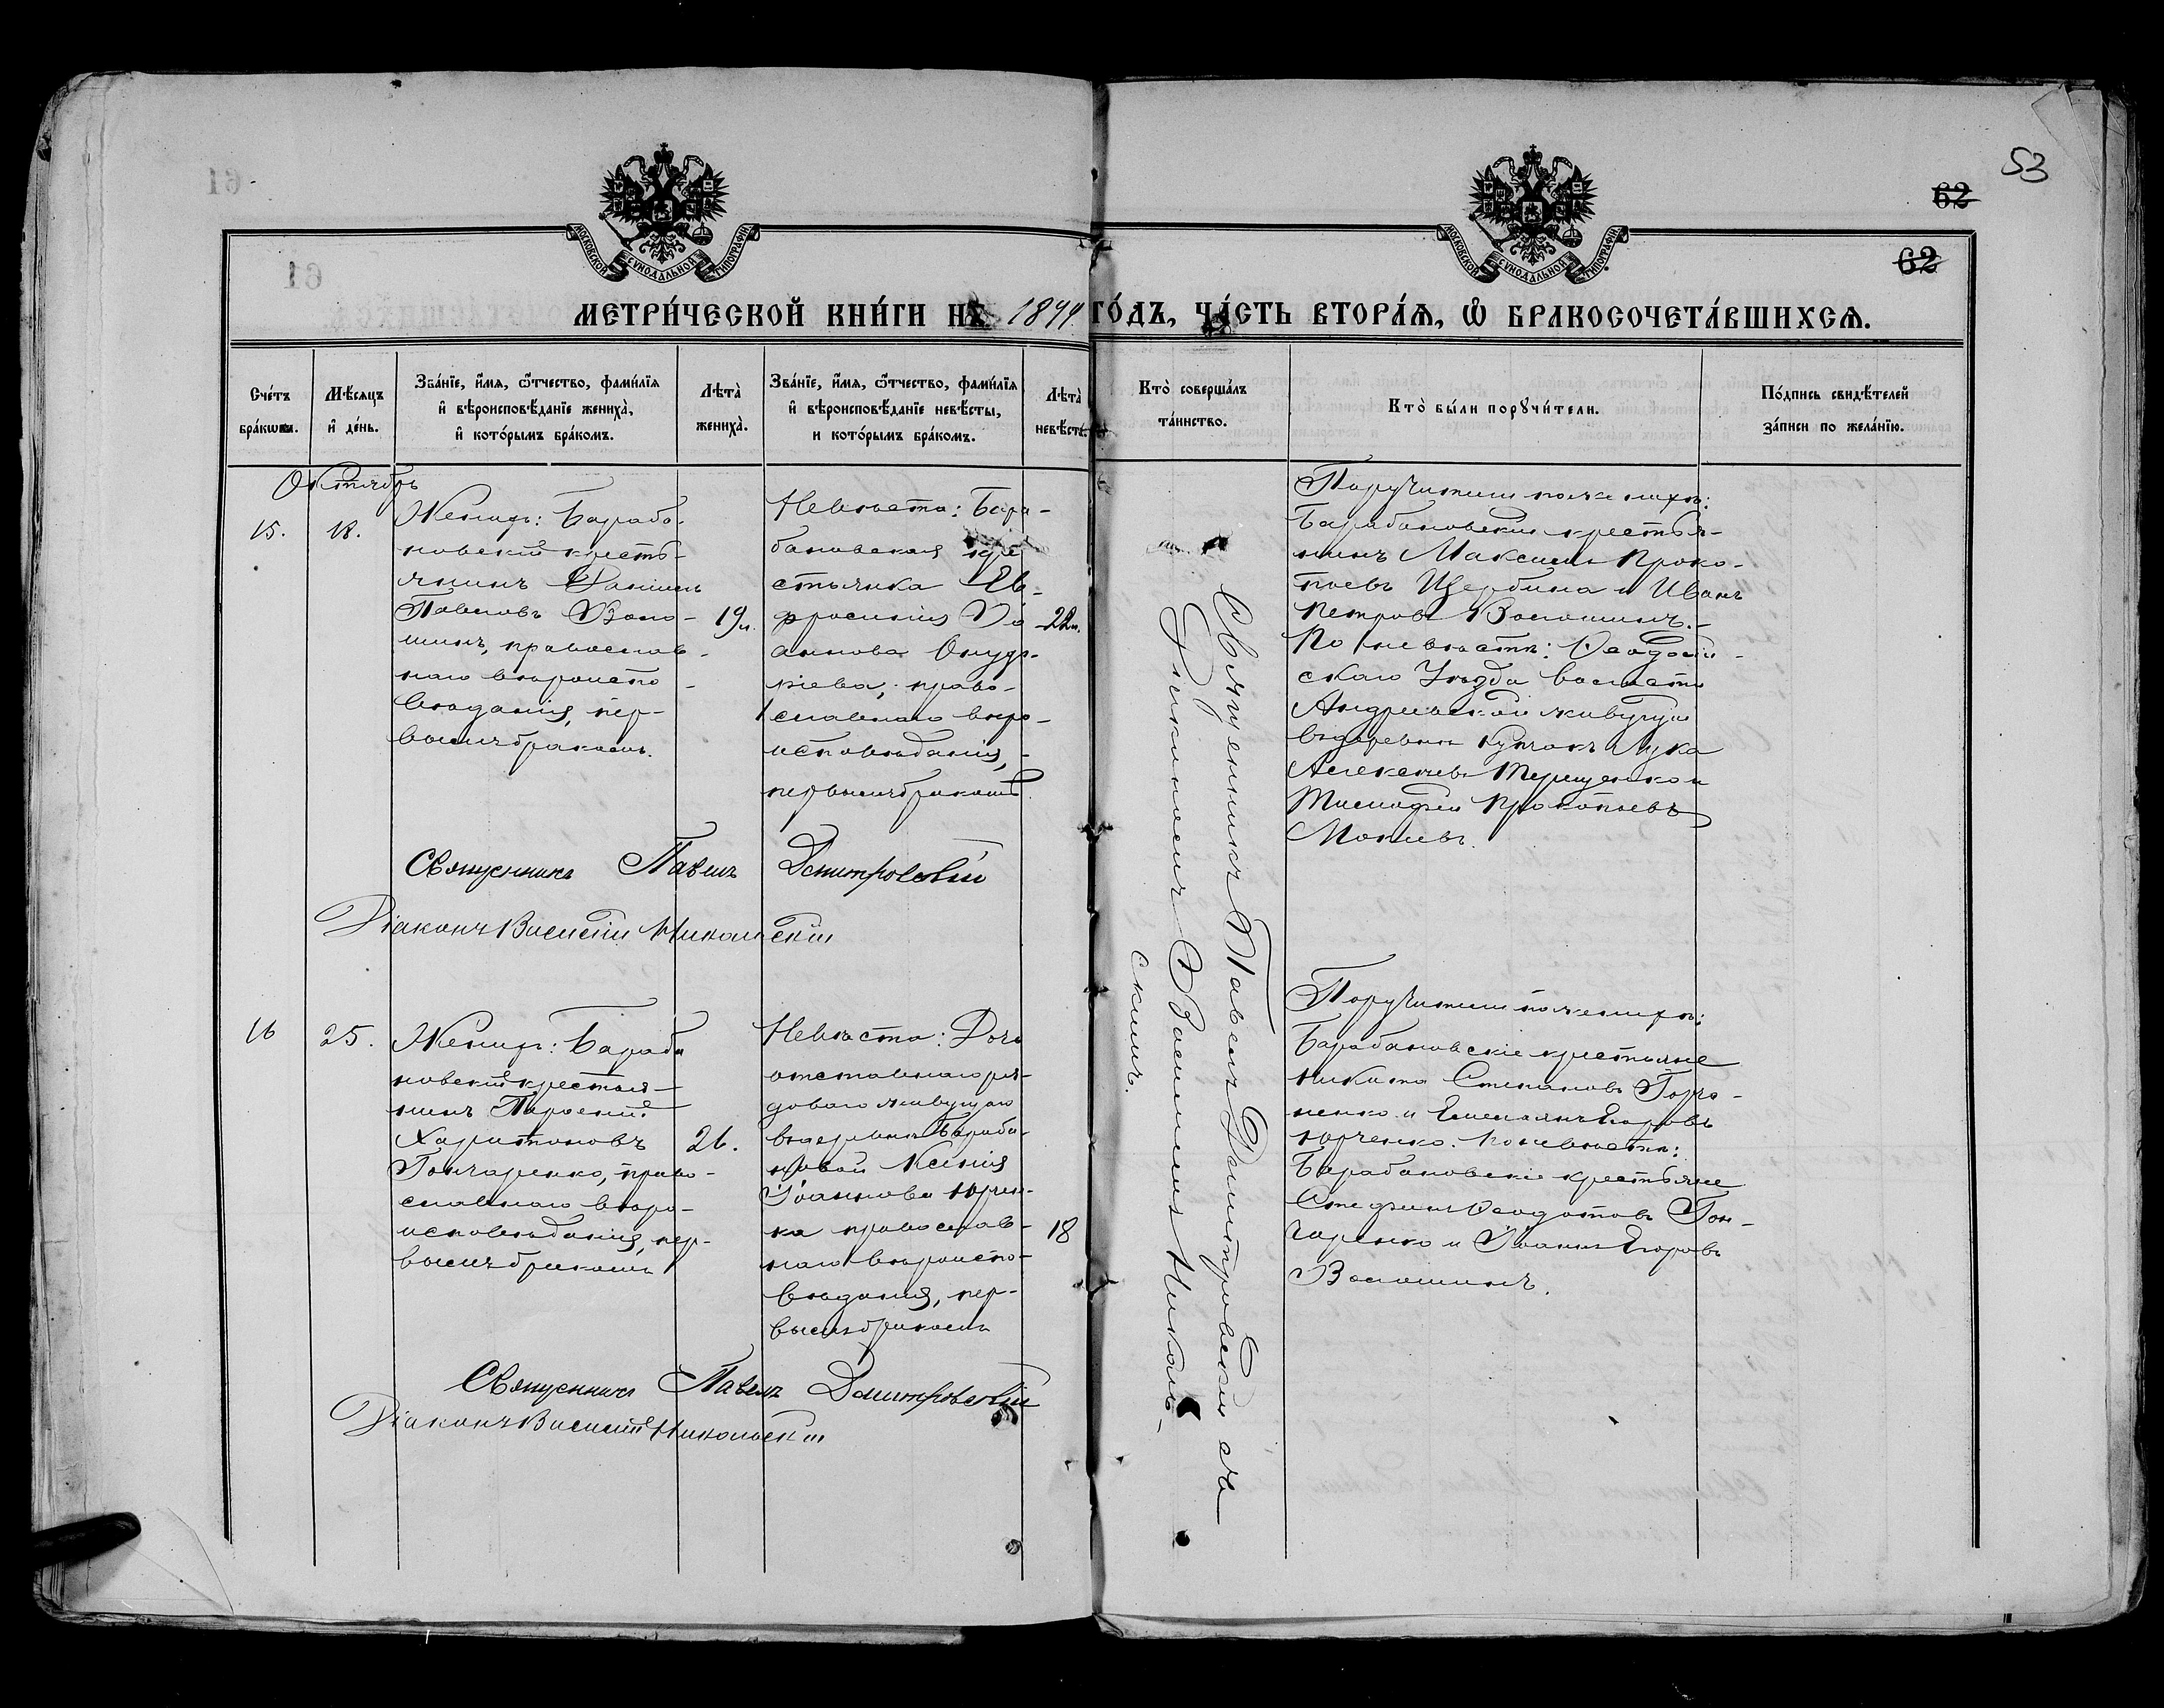 53
62
62
МОСКОВСКОЙ СѴНОДАЛЬНОЙ ТИПОГРАФІИ
МОСКОВСКОЙ СѴНОДАЛЬНОЙ ТИПОГРАФІИ
МЕТРИ́ЧЕСКОЙ КНИ́ГИ НА 1899 ГО́ДЪ, ЧА́СТЬ ВТОРА́Я, Ѡ БРАКОСОЧЕТА́ВШИХСЯ.
Сче́тъ бра́кωвъ.
Мѣ́сяцъ и҆ де́нь.
Зва́нїе, и҆́мя, ѻ҆́тчество, фами́лїя
и҆ вѣроисповѣ́данїе жениха̀,
и҆ кото́рымъ бра́комъ.
Лѣта̀ жениха̀.
Зва́нїе, и҆́мя, ѻ҆́тчество, фами́лїя
и҆ вѣроисповѣ́данїе невѣ́сты,
и кото́рымъ бра́комъ.
Лѣта̀ невѣ́сты.
Кто̀ соверша́лъ
та́инство.
Кто̀ бы́ли порꙋчи́тели.
По́дпись свидѣ́телей
за́писи по жела́нїю.
Октябрь
15.
18.
Женихъ: Бараба-
новскій кресть-
янинъ Даніилъ
Павловъ Воло-
шинъ, православ-
наго вѣроиспо-
вѣданія, пер-
вымъ бракомъ.
19 л.
Невѣста: Бара-
бановская кре
стьянка Ев-
фросинія Іо
аннова Онуф-
ріева, право-
славнаго вѣро-
исповѣданія,
первымъ бракомъ.
22 л.
Священникъ Павелъ Дмитровскій съ
Діакономъ Василіемъ Николь-
скимъ.
Поручители по женихѣ:
Барабановскій крестья-
нинъ Максимъ Проко-
піевъ Щербина и Иванъ
Петровъ Волошинъ.
По невѣстѣ: Ѳеодосій-
скаго Уѣзда волости
Андреевской живущіе
въ деревнѣ Лука
Алексѣевъ Терещенко и
Тимофей Прокопіевъ
Священникъ Павелъ Дмитровскій
Діаконъ Василій Никольскій
16
25.
Женихъ: Бараба
новскій крестья-
нинъ Тарасій
Харитоновъ
Гончаренко, право-
славнаго вѣро-
исповѣданія, пер-
вымъ бракомъ
26.
Невѣста: Дочь
отставнаго ря-
доваго живущаго
въ деревнѣ Бараба-
новой Ксенія
Іоаннова Юрчен-
ка православ-
наго вѣроиспо-
вѣданія, пер-
вымъ бракомъ
18
Поручители по женихѣ:
Барабановскіе крестьяне
Никита Степановъ Гонча-
ренко и Емельянъ Егоровъ
Юрченко. По невѣстѣ:
Барабановскіе крестьяне
Стефанъ Ѳеодотовъ Гон-
чаренко и Іоаннъ Егоровъ
Волошинъ.
Священникъ Павелъ Дмитровскій
Діаконъ Василій Никольскій